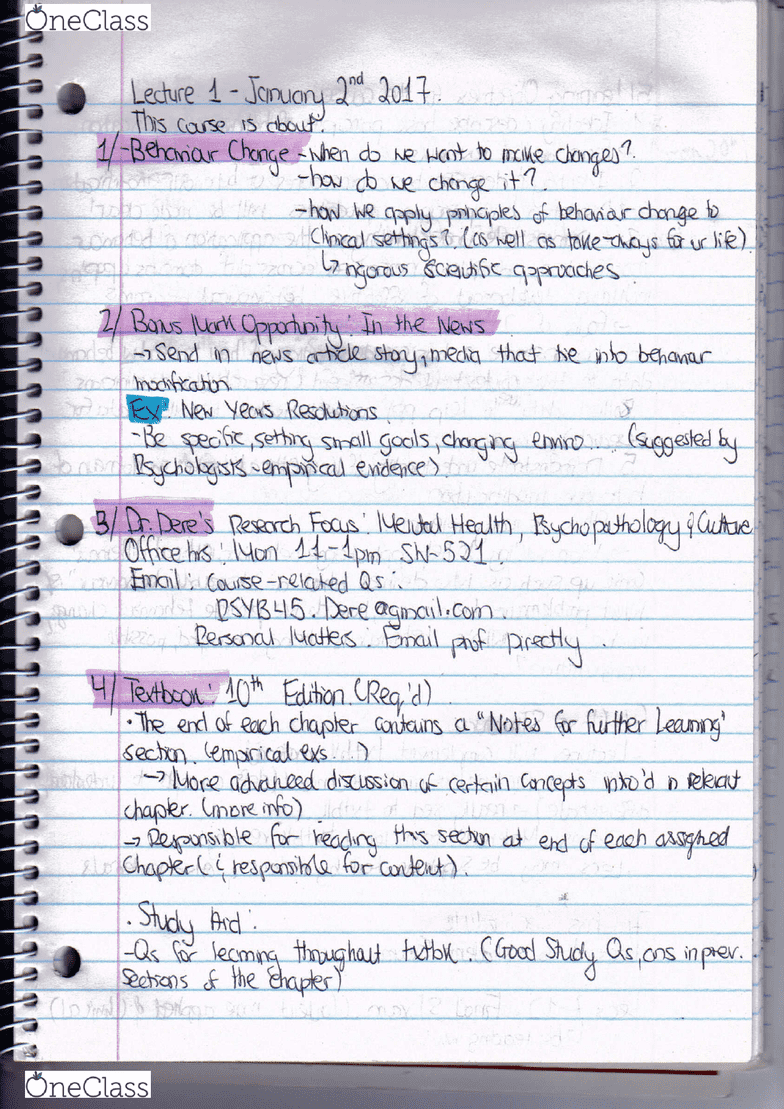 OneClass
Lecture 1 - January 2nd 2017.
This course is about:
1/ -Behaviour Change -when do we want to make changes?
-how do we change it?
-how we apply principles of behaviour change to
Clinical settings? (as well as take-aways for ur life)
↳ rigorous scientific approaches
2/ Bonus Mark Opportunity: In the News
→ Send in news article story, media that tie into behaviour
modification.
Ex: New Years Resolutions.
-Be specific, setting small goals, changing enviro... (suggested by
Psychologists - empirical evidence)
3/ Dr. Dere's Research Focus: Mental Health, Psychopathology & Culture
Office hrs. Mon 11-1pm SW-521.
Email: course-related Qs:
PSYB45.Dere@gmail.com.
Personal Matters. Email prof Directly.
4/ Textbook: 10th Edition. (Req'd)
• The end of each chapter contains a "Notes for Further Learning"
section. (empirical exs...)
→ More advanced discussion of certain concepts intro'd in relevant
chapter. (more info)
→ Responsible for reading this section at end of each assigned
Chapter (& responsible for content).
• Study Aid:
-Qs for learning throughout txtbk. (Good Study Qs, ans in prev.
sections of the chapter)
OneClass